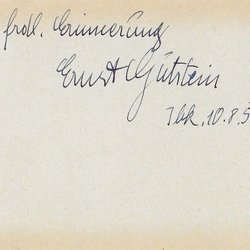 frdl. Erinnerung
Ernst Gutstein
Ibk. 10.8.5